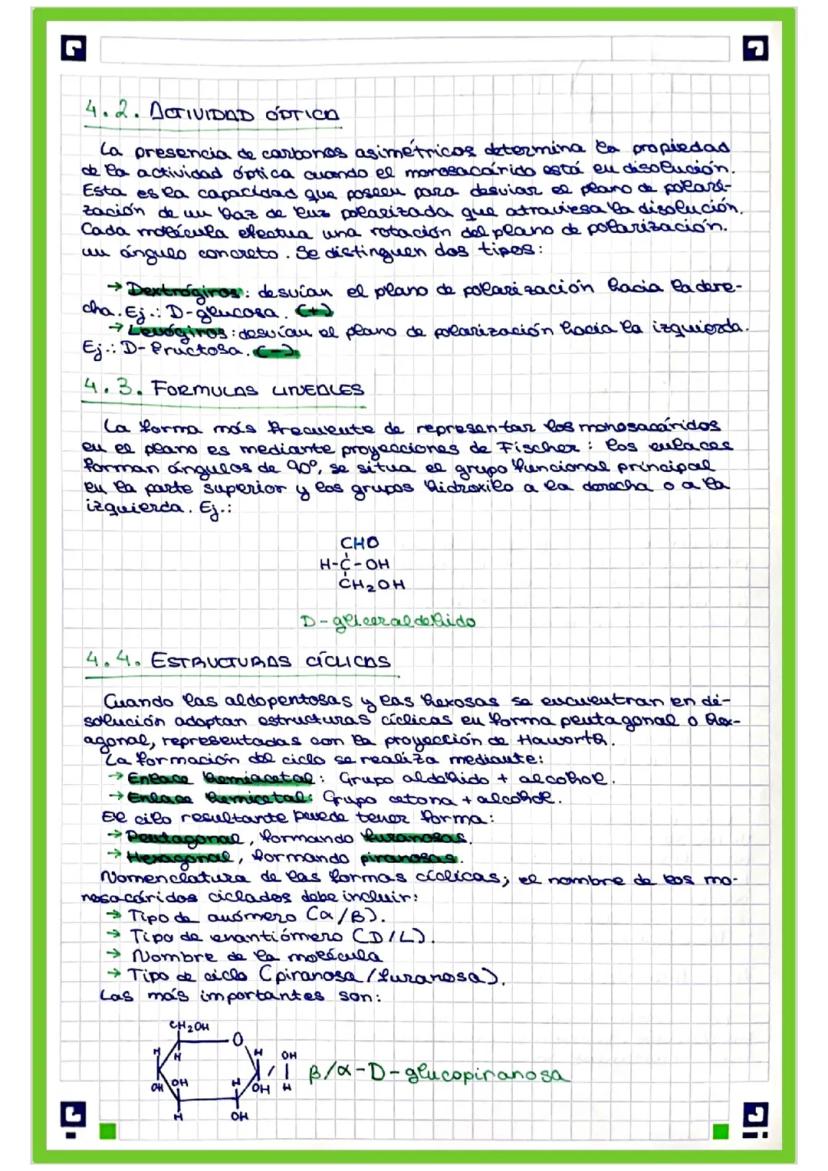 4.2. ACTIVIDAD ÓPTICA
La presencia de carbonos asimétricos determina la propiedad
de la actividad óptica cuando el monosacárido está en disolución.
Esta es la capacidad que poseen para desviar el plano de polari-
zación de un haz de luz polarizada que atraviesa la disolución.
Cada molécula efectua una rotación del plano de polarización.
un ángulo concreto. Se distinguen dos tipos:
→ Dextrógiros: desvían el plano de polarización hacia la dere-
cha. Ej.: D-glucosa. (+)
→ Levógiros: desvían el plano de polarización hacia la izquierda.
Ej.: D-Fructosa. (-)
4.3. FORMULAS LINEALES
La forma más frecuente de representar los monosacáridos
en el plano es mediante proyecciones de Fischer: los enlaces
forman ángulos de 90º, se situa el grupo funcional principal
en la parte superior y los grupos hidroxilo a la derecha o a la
izquierda. Ej.:
CHO
H-C-OH
CH₂OH
D-gliceraldehido
4.4. ESTRUCTURAS CÍCLICAS
Cuando las aldopentosas y las hexosas se encuentran en di-
solución adoptan estructuras cíclicas en forma pentagonal o hex-
agonal, representadas con la proyección de Haworth.
La formación del ciclo se realiza mediante:
→ Enlace hemiacetal: Grupo aldehido + alcohol.
→ Enlace hemicetal: Grupo cetona + alcohol.
El cilo resultante puede tener forma:
→ Pentagonal, formando furanosas.
→ Hexagonal, formando piranosas.
Nomenclatura de las formas cíclicas; el nombre de los mo-
nosacáridos ciclados debe incluir:
→ Tipo de anómero (α/β).
→ Tipo de enantiómero (D/L).
→ Nombre de la molécula
→ Tipo de ciclo (piranosa/furanosa).
Las más importantes son:
CH₂OH
O
H H H OH
OH OH H / OH H
H OH
β/α-D-glucopiranosa